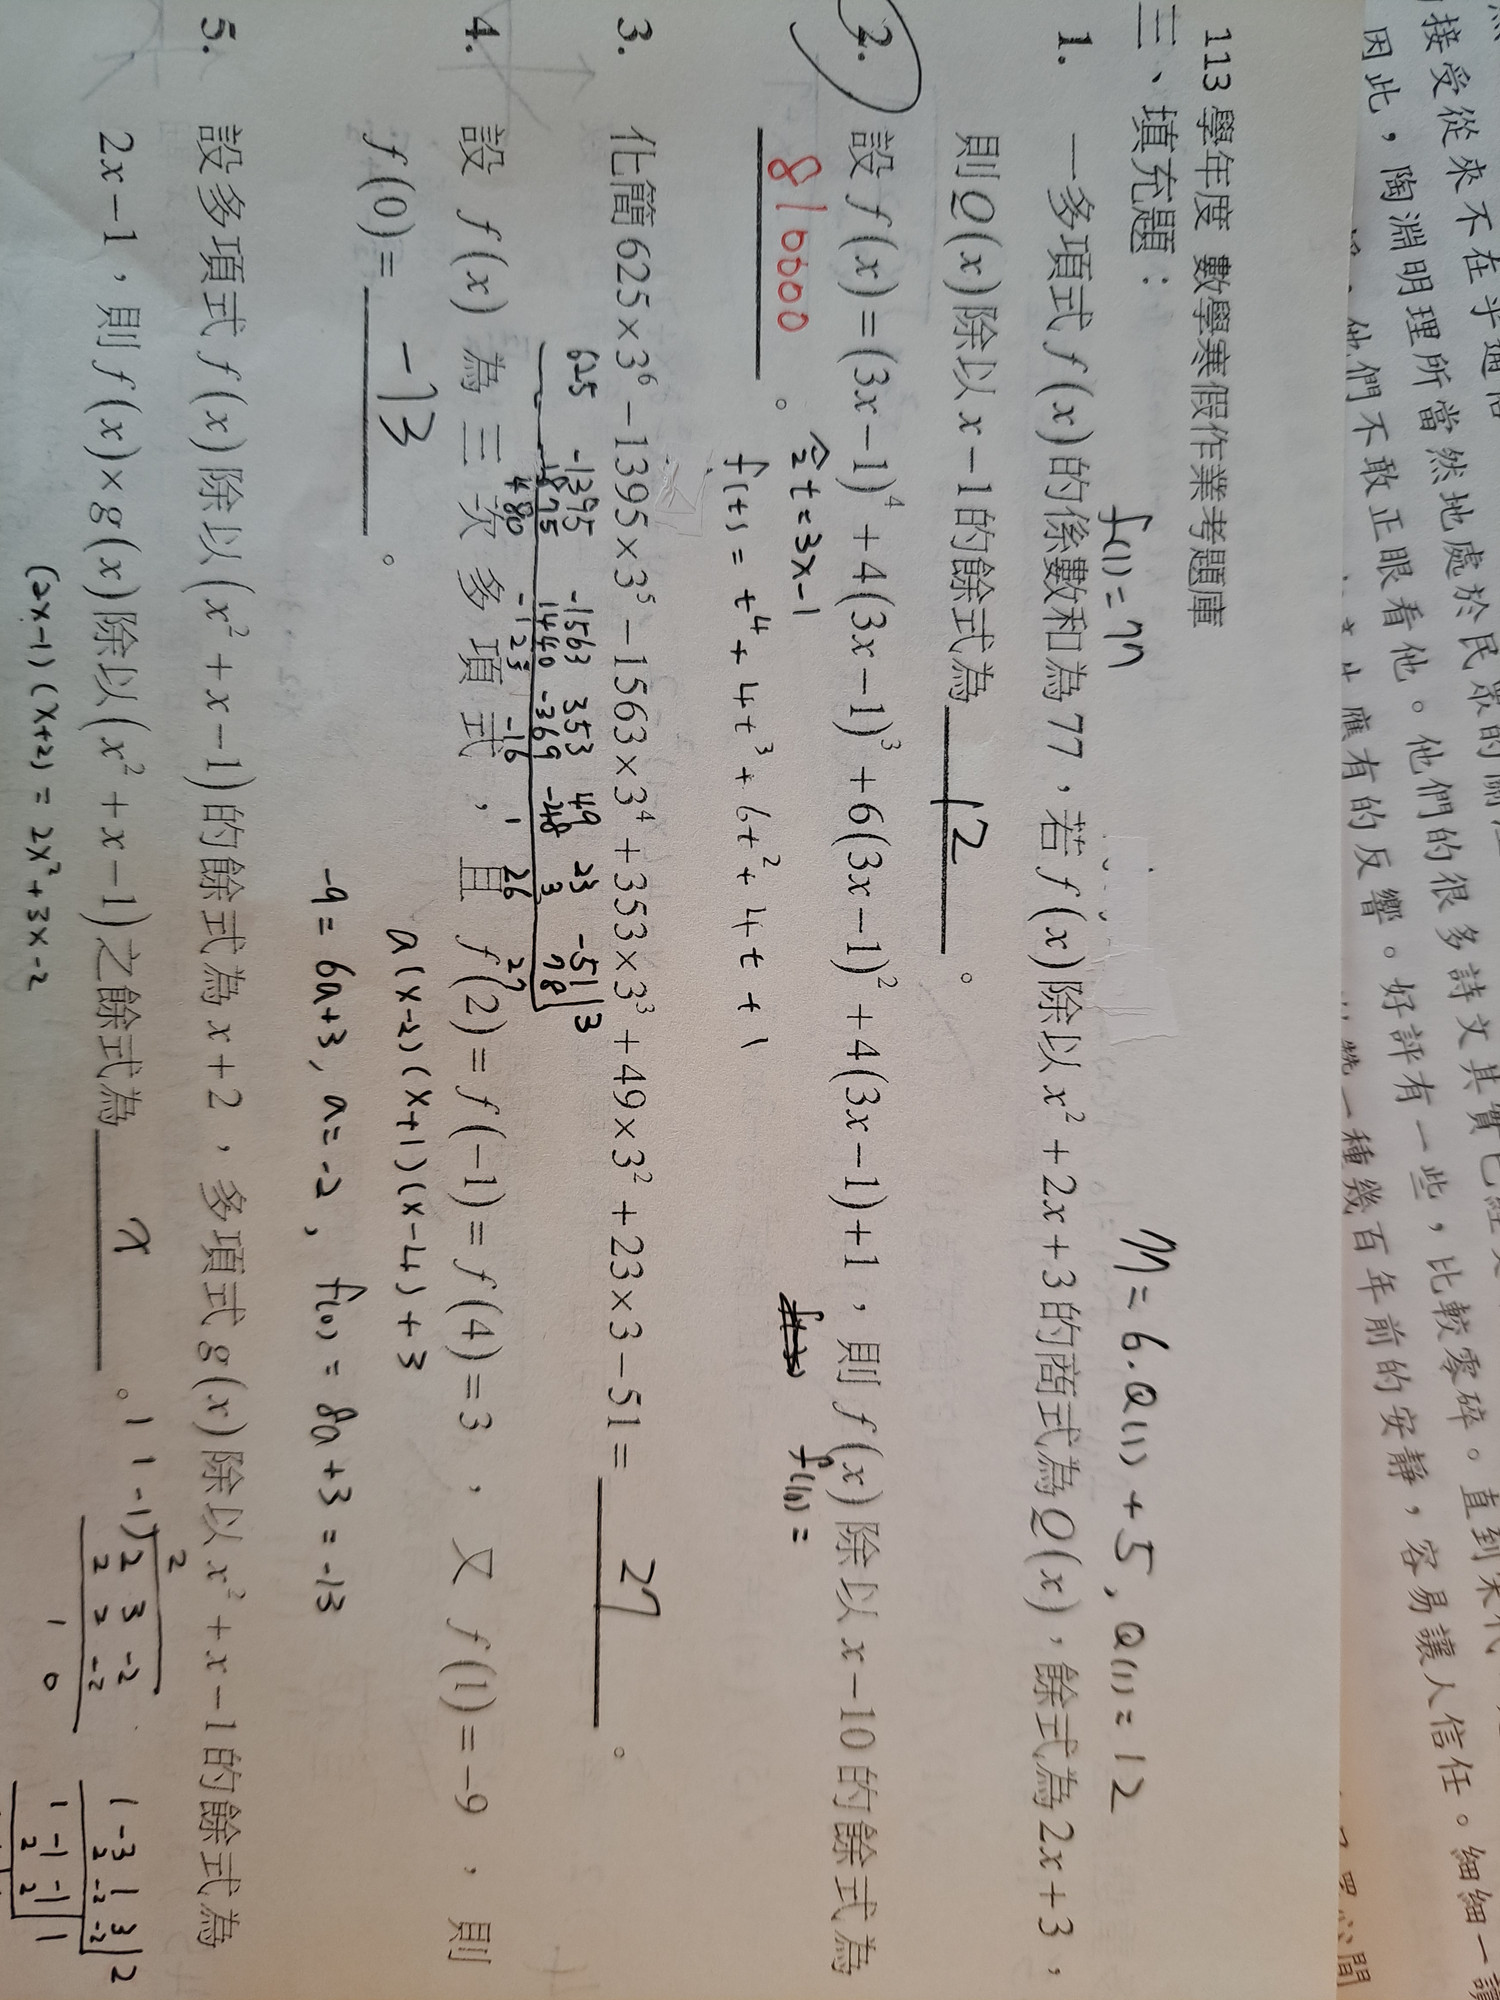 接受從來不在乎
因此，陶淵明理所當然地處於民眾的
他們不敢正眼看他。他們的很多詩文其實已經
應有的反響。好評有一些，比較零碎。直到宋代
一種幾百年前的安靜，容易讓人信任。細細一讀
113 學年度 數學寒假作業考題庫
三、填充題：
f(1) = 77
77 = 6·Q(1) + 5, Q(1) = 12
1. 一多項式 f(x) 的係數和為 77，若 f(x) 除以 x² + 2x + 3 的商式為 Q(x)，餘式為 2x + 3，
則 Q(x) 除以 x − 1 的餘式為 12 。
2. 設 f(x) = (3x − 1)⁴ + 4(3x − 1)³ + 6(3x − 1)² + 4(3x − 1) + 1，則 f(x) 除以 x − 10 的餘式為
810000 。
令 t = 3x−1
f(10) =
f(t) = t⁴ + 4t³ + 6t² + 4t + 1
3. 化簡 625×3⁶ − 1395×3⁵ − 1563×3⁴ + 353×3³ + 49×3² + 23×3 − 51 = 27 。
625 -1395 -1563 353 49 23 -51 | 3
1875 1440 -369 -48 3 78
480 -123 -16 1 26 27
4. 設 f(x) 為三次多項式，且 f(2) = f(−1) = f(4) = 3，又 f(1) = −9，則
f(0) = −13 。
a(x−2)(x+1)(x−4) + 3
-9 = 6a+3, a = -2, f(0) = 8a + 3 = -13
5. 設多項式 f(x) 除以 (x² + x − 1) 的餘式為 x + 2，多項式 g(x) 除以 x² + x − 1 的餘式為
2x − 1，則 f(x) × g(x) 除以 (x² + x − 1) 之餘式為 x 。
(2x−1)(x+2) = 2x² + 3x −2
2
1 1 -1 ) 2 3 -2
2 2 -2
1 0
1 -3 1 3 | 2
2 -2 -2
1 -1 -1 | 1
2 2